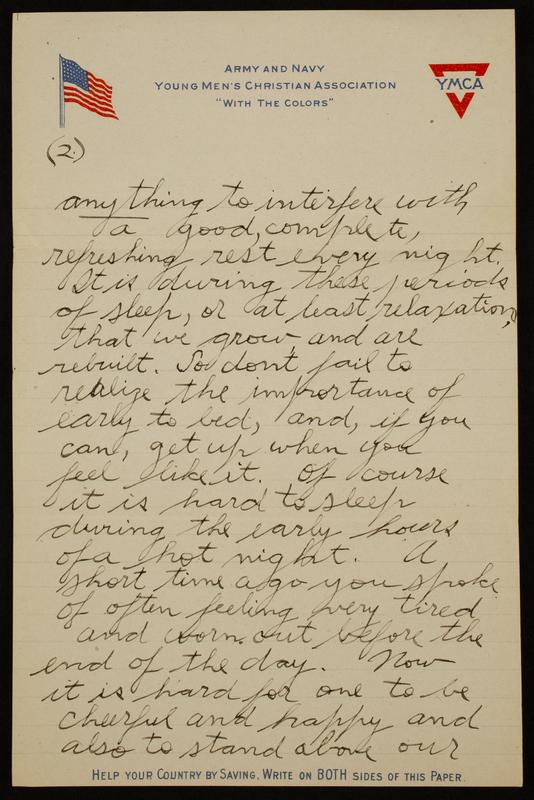 ARMY AND NAVY
YOUNG MEN'S CHRISTIAN ASSOCIATION
"WITH THE COLORS"
YMCA
(2.)
anything to interfere with
a good, complete,
refreshing rest every night.
It is during these periods
of sleep, or at least relaxation,
that we grow and are
rebuilt. So don't fail to
realize the importance of
early to bed, and, if you
can, get up when you
feel like it. Of course
it is hard to sleep
during the early hours
of a hot night. A
short time ago you spoke
of often feeling very tired
and worn out before the
end of the day. Now
it is hard for one to be
cheerful and happy and
also to stand above our
HELP YOUR COUNTRY BY SAVING. WRITE ON BOTH SIDES OF THIS PAPER.